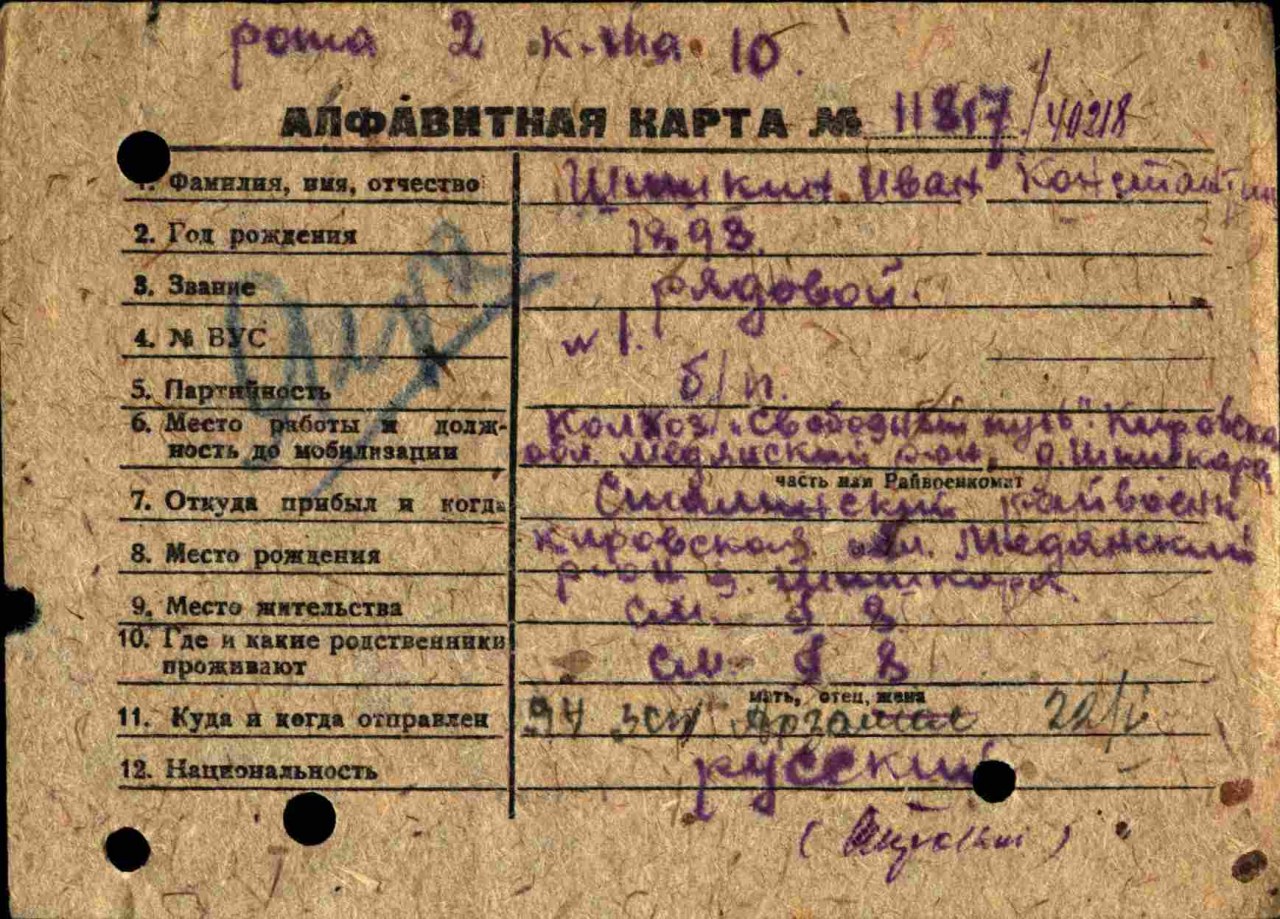 рота 2 к-та 10.
АЛФАВИТНАЯ КАРТА № 11817/40218
1. Фамилия, имя, отчество Шишкин Иван Константин
2. Год рождения 1898.
3. Звание рядовой.
4. № ВУС № 1.
5. Партийность б/п.
6. Место работы и долж- Колхоз „Свободный путь" Кировская
ность до мобилизации обл. Медянский р-он, д. Шишкара
часть или Райвоенкомат
7. Откуда прибыл и когда Сталинский райвоенк
8. Место рождения Кировская обл. Медянский
р-он д. Шишкара
9. Место жительства см. § 8
10. Где и какие родственники
проживают см. § 8
мать, отец, жена
11. Куда и когда отправлен 94 зсп Арзамас 22/I
12. Национальность русский